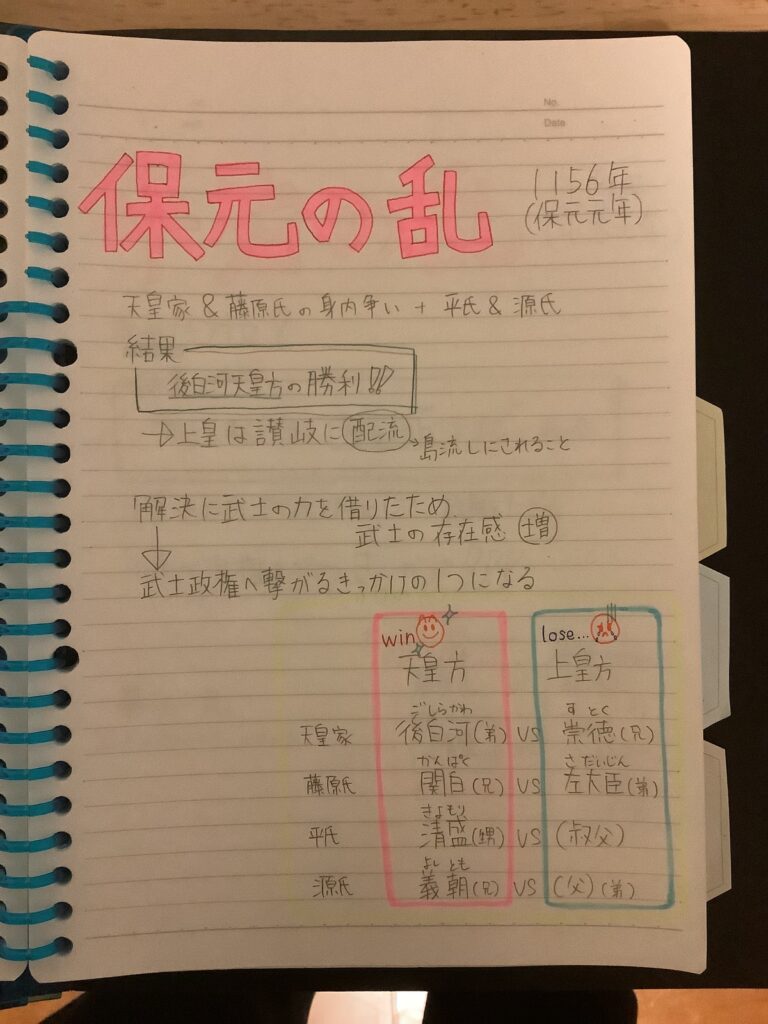 No.
Date
保元の乱
1156年
(保元元年)
天皇家 & 藤原氏の身内争い + 平氏 & 源氏
結果
後白河天皇方の勝利!!
→上皇は讃岐に配流→島流しにされること
解決に武士の力を借りたため
武士の存在感 増
↓
武士政権へ繋がるきっかけの1つになる
win lose...
天皇方 上皇方
ごしらかわ すとく
天皇家 後白河(弟) VS 崇徳(兄)
かんぱく さだいじん
藤原氏 関白(兄) VS 左大臣(弟)
きよもり
平氏 清盛(甥) VS (叔父)
よしとも
源氏 義朝(兄) VS (父)(弟)